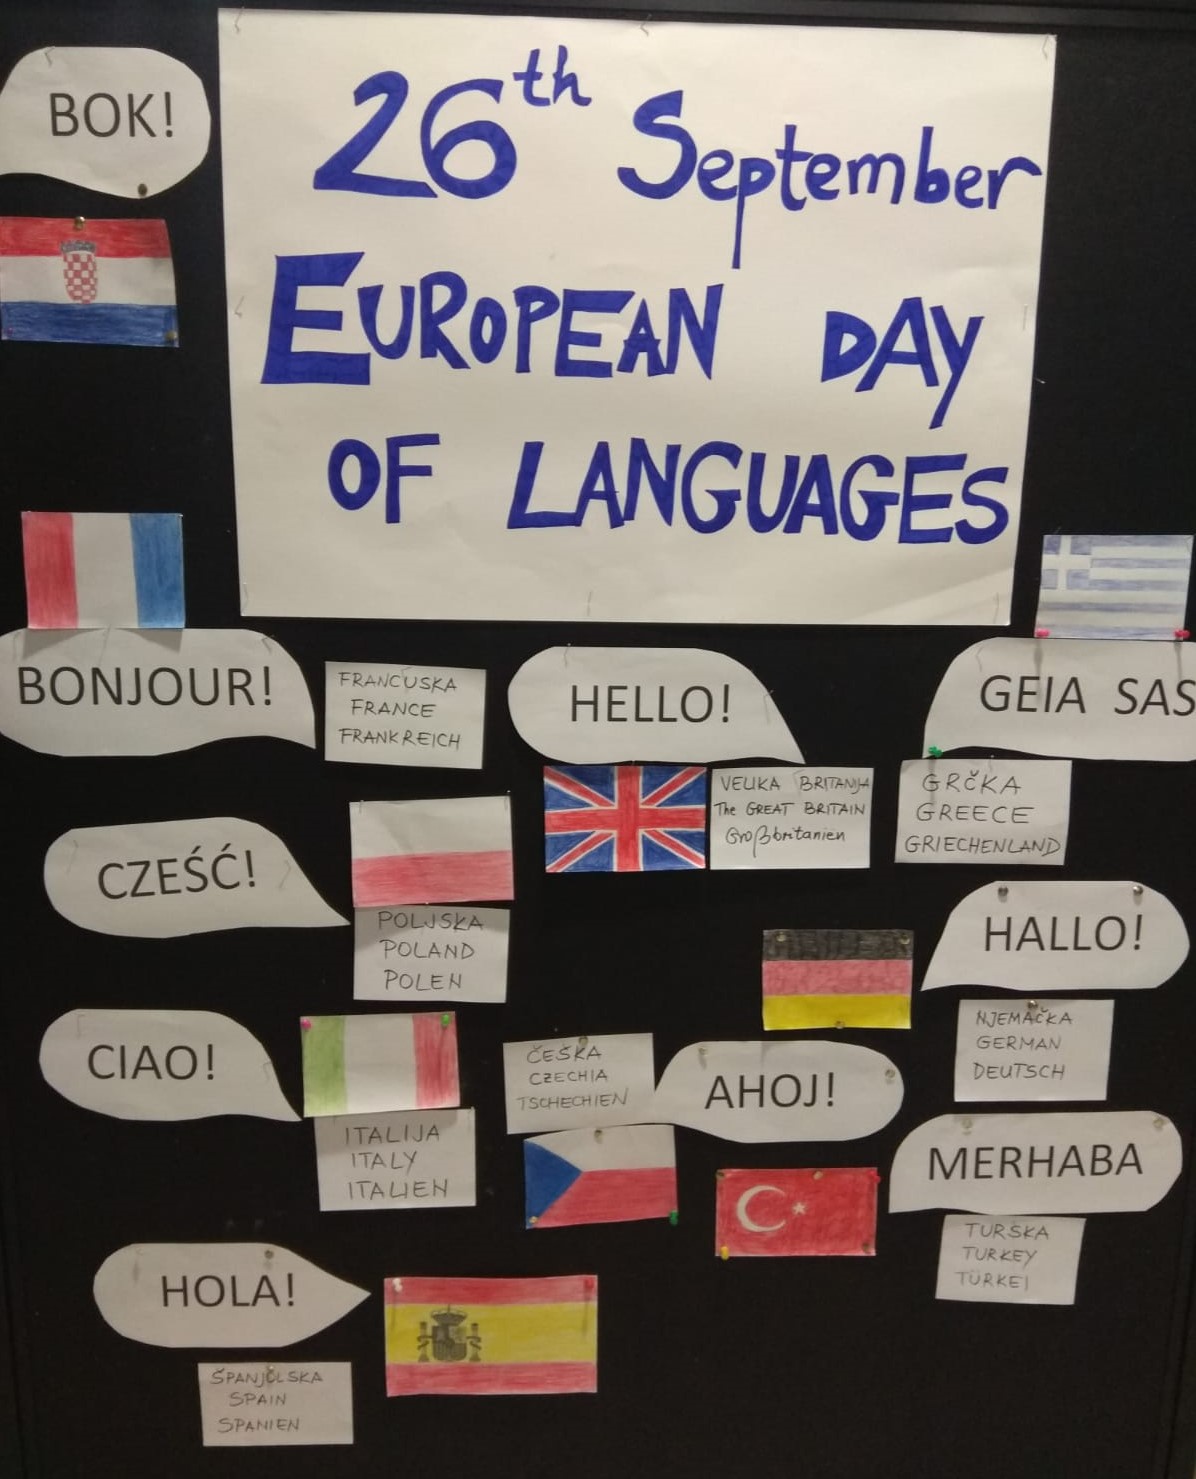 BOK!
26th September
EUROPEAN DAY
OF LANGUAGES
BONJOUR!
FRANCUSKA
FRANCE
FRANKREICH
HELLO!
VELIKA BRITANIJA
The GREAT BRITAIN
Großbritanien
GEIA SAS
GRČKA
GREECE
GRIECHENLAND
CZEŚĆ!
POLJSKA
POLAND
POLEN
HALLO!
NJEMAČKA
GERMAN
DEUTSCH
CIAO!
ITALIJA
ITALY
ITALIEN
ČEŠKA
CZECHIA
TSCHECHIEN
AHOJ!
MERHABA
TURSKA
TURKEY
TÜRKEI
HOLA!
ŠPANJOLSKA
SPAIN
SPANIEN